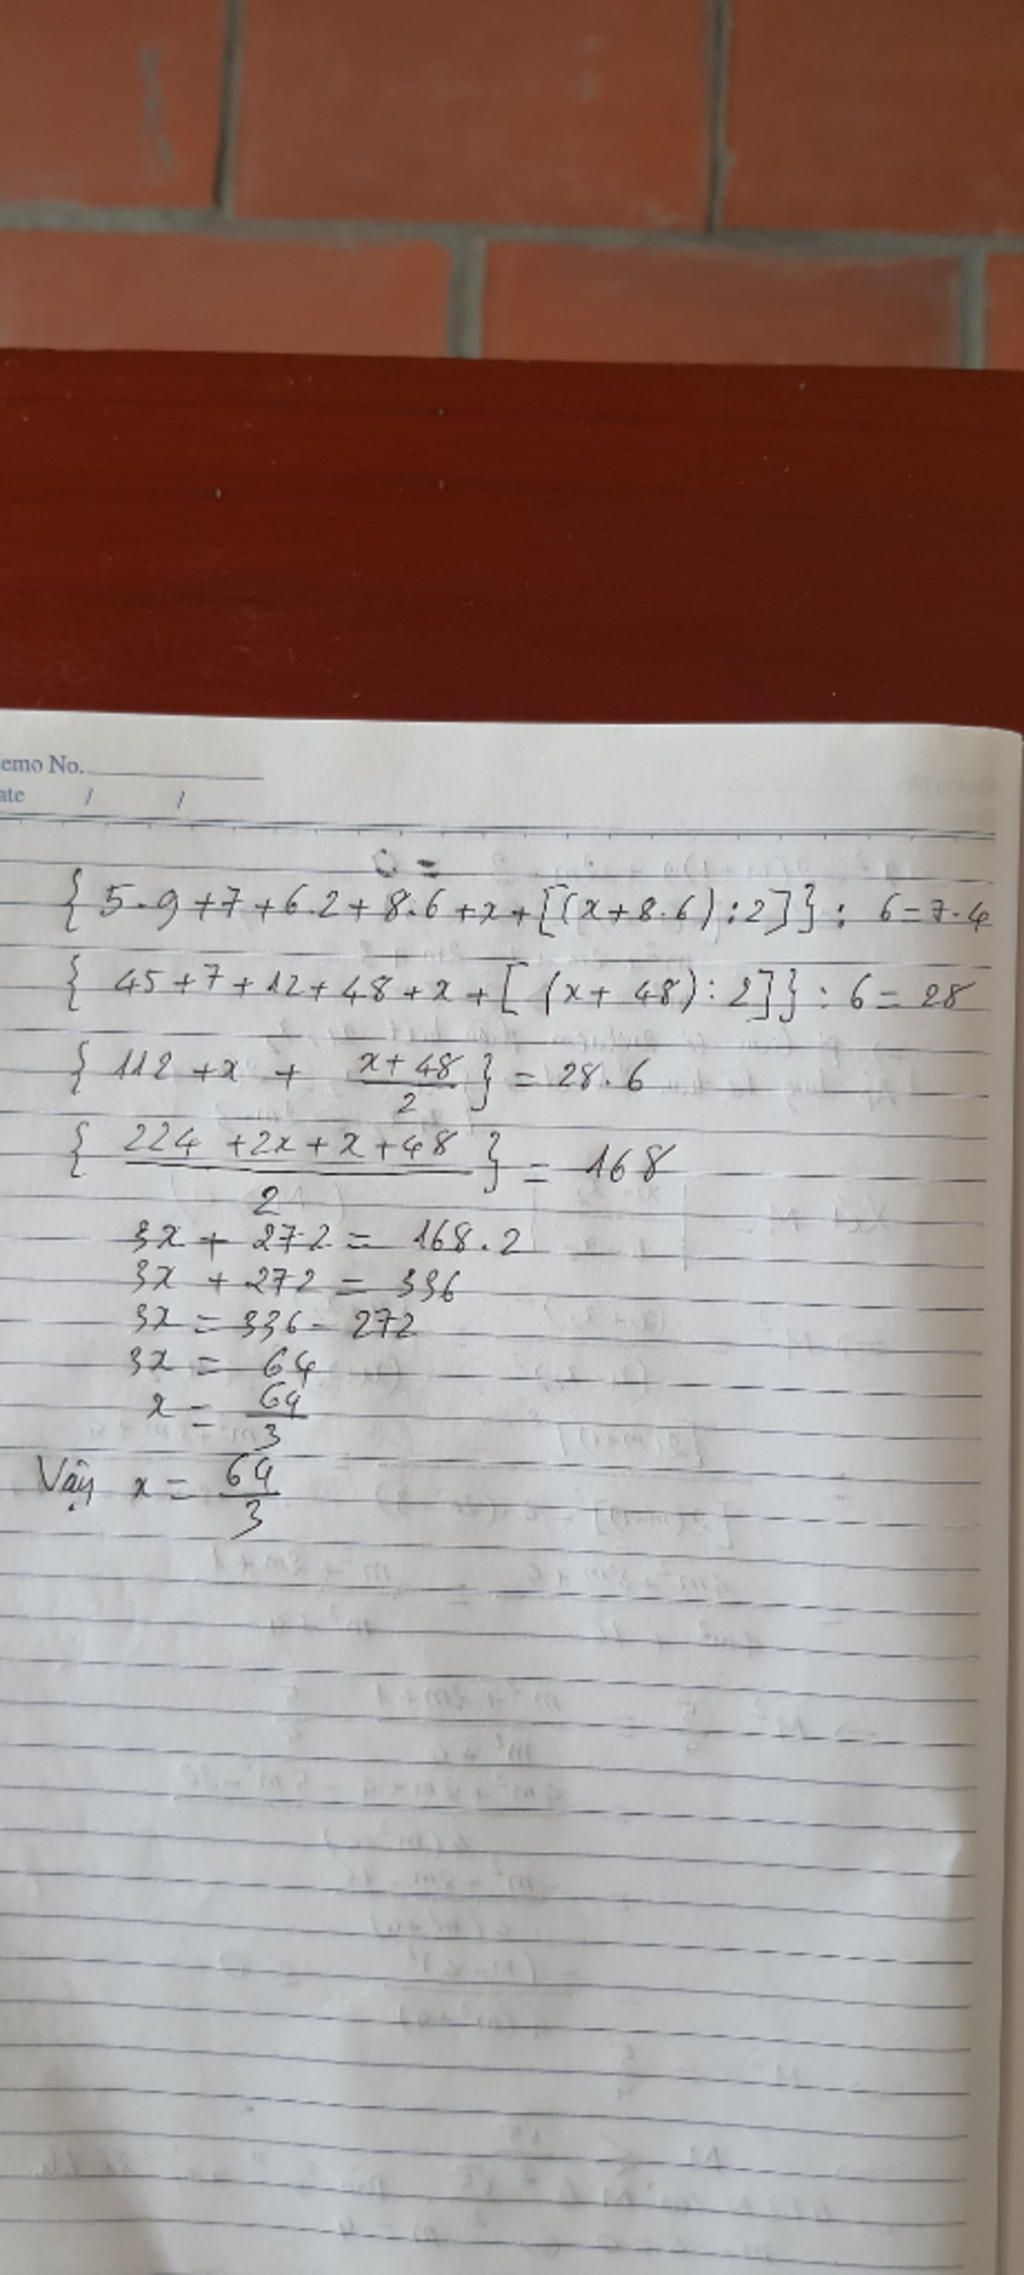 emo No.
ate / /
{ 5.9+7+6.2+8.6+x+[(x+8.6):2]}: 6=7.4
{ 45+7+12+48+x+[(x+48):2]}:6=28
{ 112+x + \frac{x+48}{2} } = 28.6
{ \frac{224+2x+x+48}{2} } = 168
3x + 272 = 168.2
3x + 272 = 336
3x = 336 - 272
3x = 64
x = \frac{64}{3}
Vậy x = \frac{64}{3}